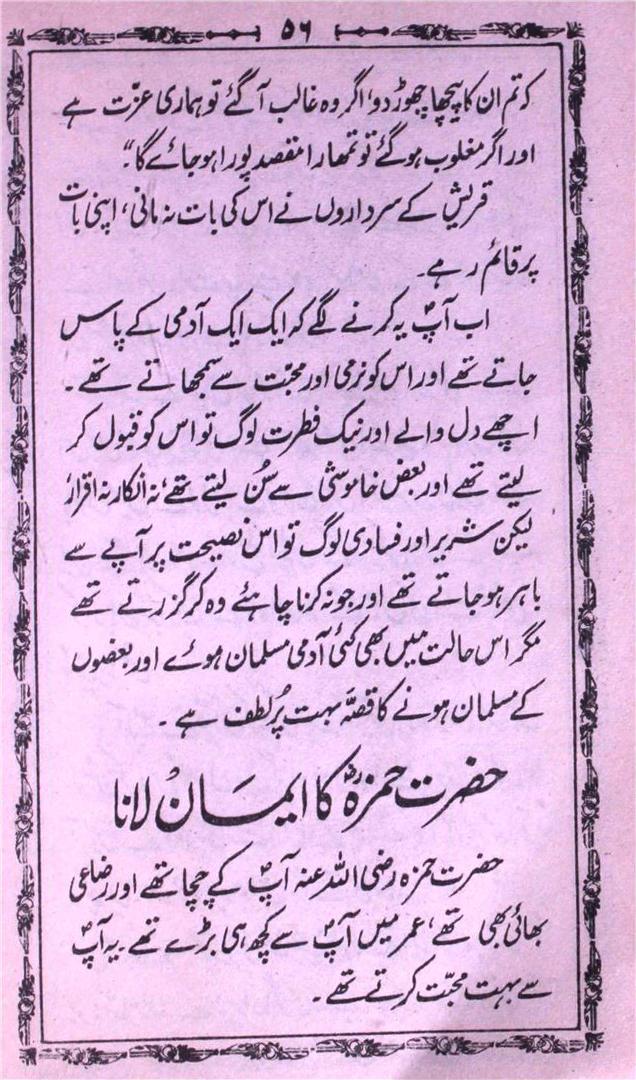 ۵۶
کہ تم ان کا پیچھا چھوڑ دو، اگر وہ غالب آگئے تو ہماری عزّت ہے
اور اگر مغلوب ہوگئے تو تمہارا مقصد پورا ہوجائے گا“۔
قریش کے سرداروں نے اس کی بات نہ مانی، اپنی بات
پر قائم رہے۔
اب آپؐ یہ کرنے لگے کہ ایک ایک آدمی کے پاس
جاتے تھے اور اس کو نرمی اور محبّت سے سمجھاتے تھے۔
اچھے دل والے اور نیک فطرت لوگ تو اس کو قبول کر
لیتے تھے اور بعض خاموشی سے سُن لیتے تھے، نہ انکار نہ اقرار
لیکن شریر اور فسادی لوگ تو اس نصیحت پر آپے سے
باہر ہوجاتے تھے اور جو نہ کرنا چاہئے وہ کر گزرتے تھے
مگر اس حالت میں بھی کئی آدمی مسلمان ہوئے اور بعضوں
کے مسلمان ہونے کا قصّہ بہت پُر لطف ہے۔
حضرت حمزہؓ کا ایمان لانا
حضرت حمزہ رضی اللہ عنہ آپؐ کے چچا تھے اور رضاعی
بھائی بھی تھے، عمر میں آپؐ سے کچھ ہی بڑے تھے۔ یہ آپؐ
سے بہت محبّت کرتے تھے۔